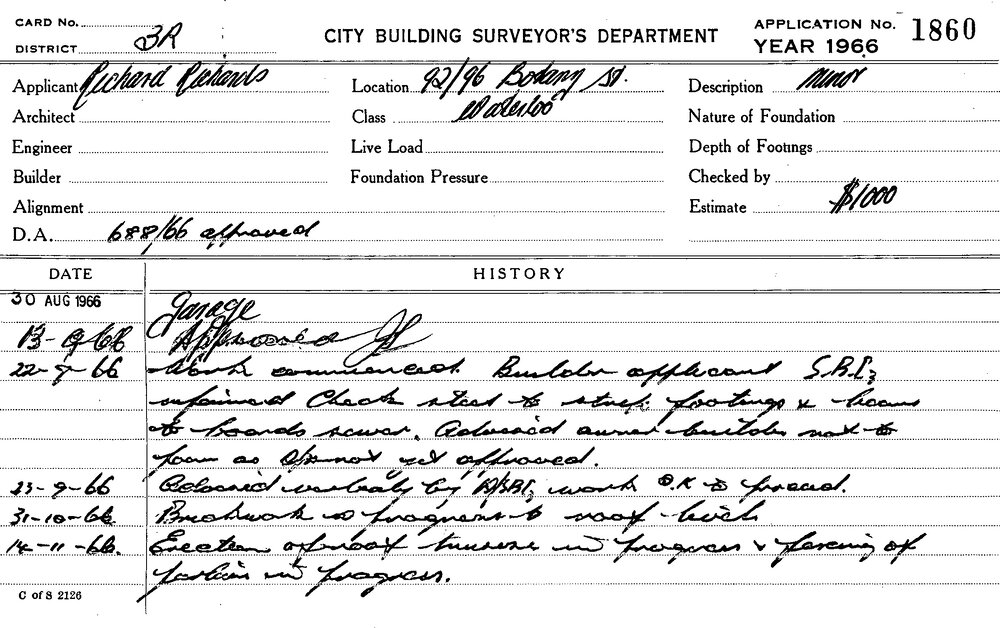 CARD No.
DISTRICT 3R
CITY BUILDING SURVEYOR'S DEPARTMENT
APPLICATION No. 1860
YEAR 1966
Applicant Richard Richards
Location 92/96 St.
Description Minor
Architect
Class Waterloo
Nature of Foundation
Engineer
Live Load
Depth of Footings
Builder
Foundation Pressure
Checked by
Alignment
Estimate $1000
D.A. 688/66 approved
DATE
HISTORY
30 AUG 1966 Garage
13-9-66 Approved
22-9-66 Work commenced. Builder applicant
informed Check steel to strip footings & beams
to boards sewer. Advised owner builder not to
pour as not yet approved.
23-9-66 Advised verbally by work O.K to proceed.
31-10-66. Brickwork in progress to roof level
14-11-66. Erection of roof in progress & of
in progress.
C of S 2126